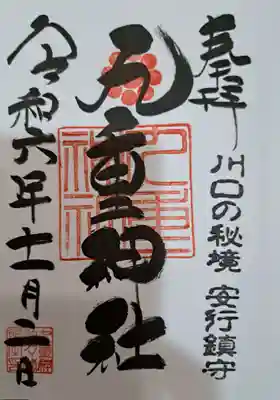 奉拝
川口の秘境 安行鎮守
九重神社
令和六年十一月二日